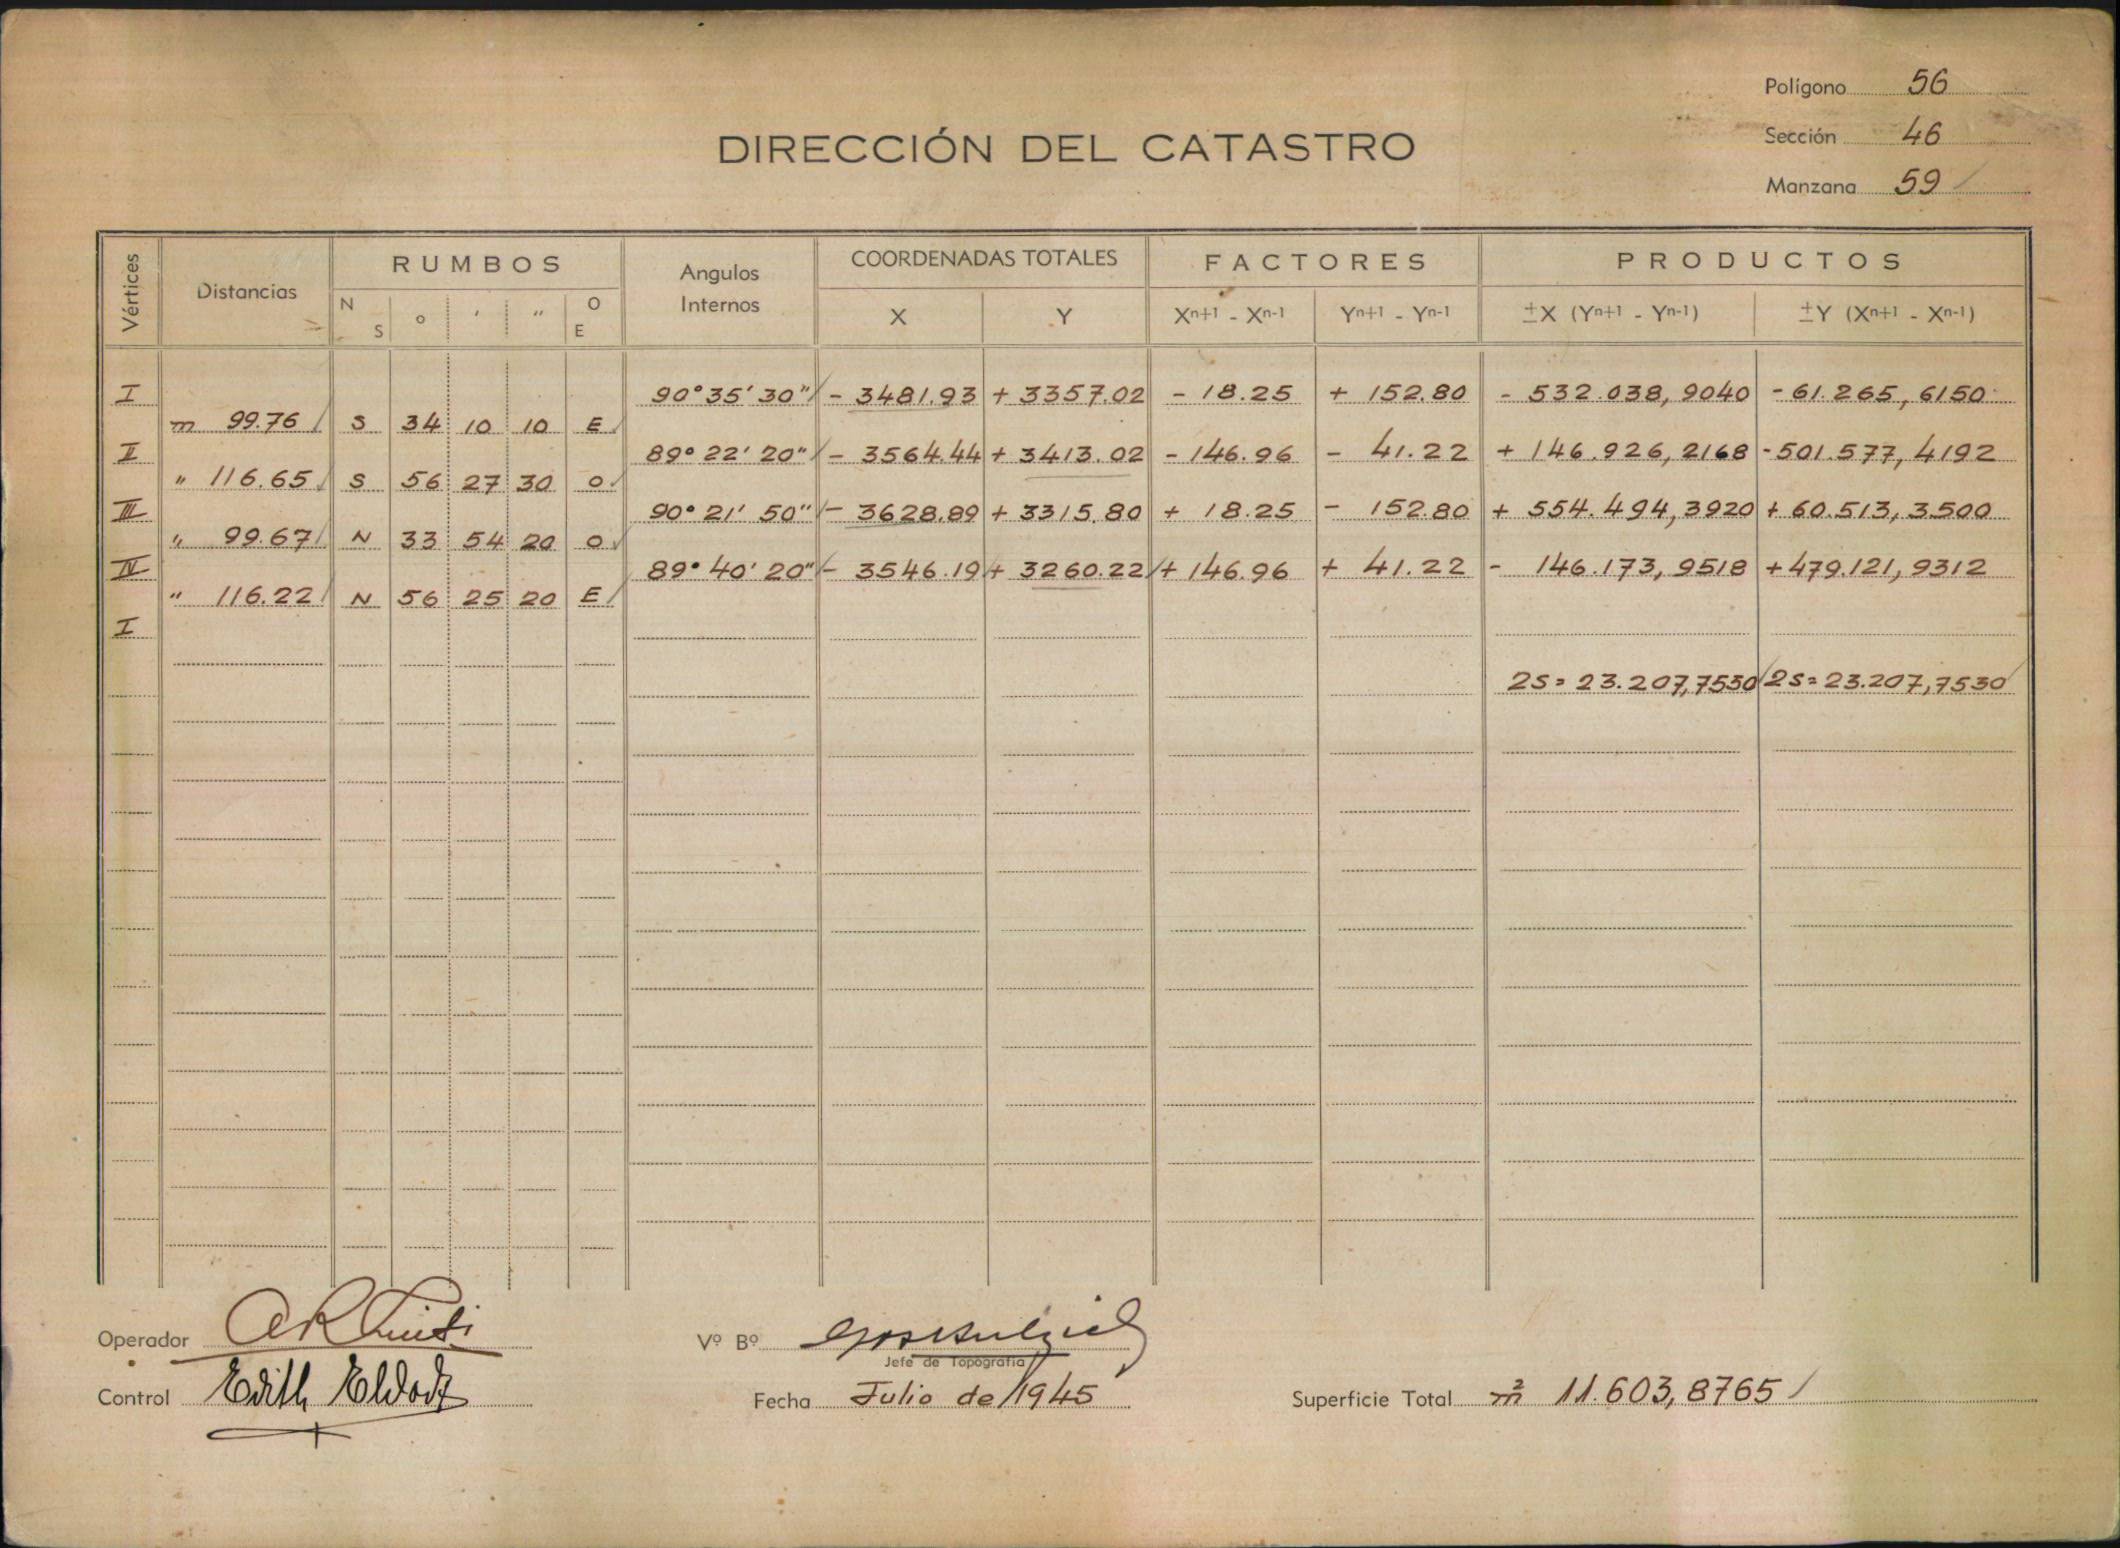 Polígono 56
Sección 46
Manzana 59
DIRECCIÓN DEL CATASTRO
Vértices Distancias RUMBOS Angulos Internos COORDENADAS TOTALES FACTORES PRODUCTOS
N S ° ' " O E X Y Xn+1 - Xn-1 Yn+1 - Yn-1 ±X (Yn+1 - Yn-1) ±Y (Xn+1 - Xn-1)
I 90° 35' 30" - 3481.93 + 3357.02 - 18.25 + 152.80 - 532.038,9040 - 61.265,6150
m 99.76 S 34 10 10 E
II 89° 22' 20" - 3564.44 + 3413.02 - 146.96 - 41.22 + 146.926,2168 - 501.577,4192
" 116.65 S 56 27 30 O
III 90° 21' 50" - 3628.89 + 3315.80 + 18.25 - 152.80 + 554.494,3920 + 60.513,3500
" 99.67 N 33 54 20 O
IV 89° 40' 20" - 3546.19 + 3260.22 + 146.96 + 41.22 - 146.173,9518 + 479.121,9312
" 116.22 N 56 25 20 E
I
2S = 23.207,7530 2S = 23.207,7530
Operador
Vº Bº
Jefe de Topografía
Control Edith
Fecha Julio de 1945
Superficie Total m² 11.603,8765